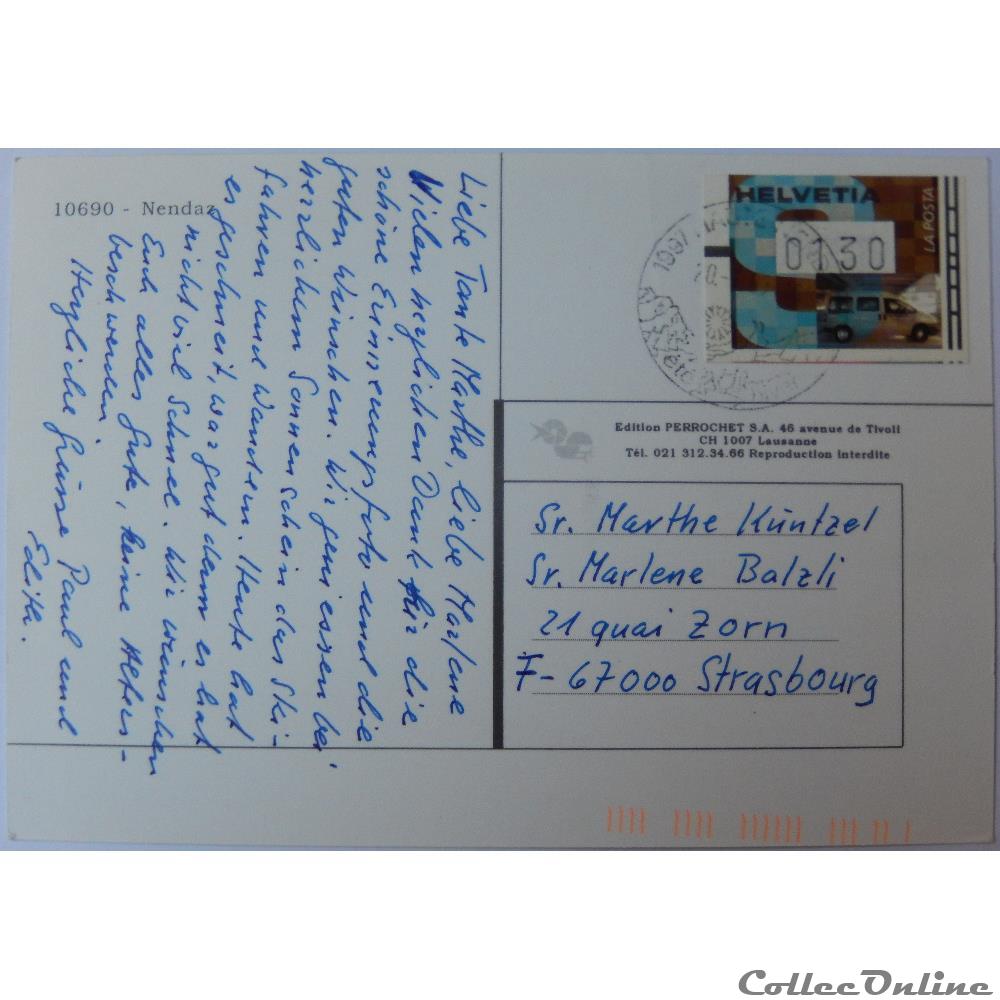 10690 - Nendaz
Liebe Tante Marthe, liebe Marlene
Vielen herzlichen Dank für die
schöne Erinnerungsfoto und die
guten Wünschen. Wir geniessen bei
herrlichem Sonnenschein das Ski-
fahren und Wandern. Heute hat
es geschneit, war gut denn es hat
nicht viel Schnee. Wir wünschen
Euch alles Gute, keine Alters-
beschwerden.
Herzliche Grüsse Paul und
Edith.
HELVETIA
0130
LA POSTA
1997
été
Edition PERROCHET S.A. 46 avenue de Tivoli
CH 1007 Lausanne
Tél. 021 312.34.66 Reproduction interdite
Sr. Marthe Küntzel
Sr. Marlene Balzli
21 quai Zorn
F-67000 Strasbourg
CollecOnline